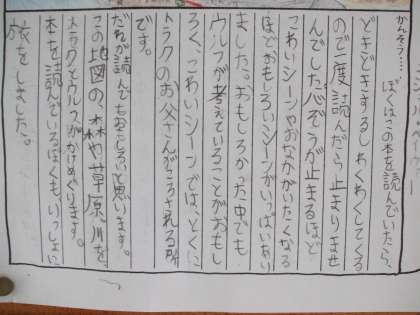 かんそう…
ぼくはこの本を読んでいたら、
どきどきするしわくわくしてくる
ので一度読んだら止まりませ
んでした。心ぞうが止まるほど
こわいシーンやおなかがいたくなる
ほどおもしろいシーンがいっぱいあり
ました。おもしろかった中でも
ウルフが考えていることがおもし
ろく、こわいシーンでは、とくに
トラクのお父さんがころされる所
です。
だれが読んでもおもしろいと思います。
この地図の、森や草原、川を、
トラクとウルフがかけめぐります。
本を読んでいるぼくも、いっしょに
旅をしました。